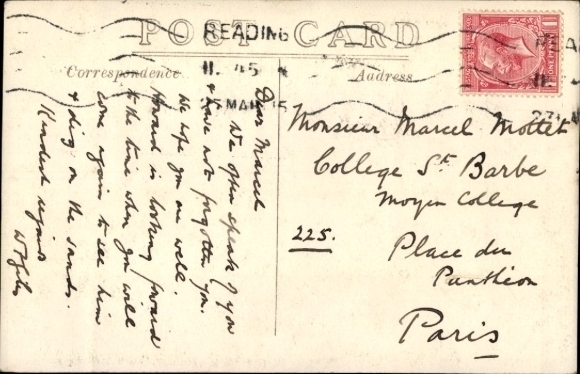 POST CARD
READING
11. 45
MAR 15
Correspondence
Address
ONE PENNY
Dear Marcel
We often speak of you
& have not forgotten you.
We hope you are well.
Howard is looking forward
to the time when you will
come again to see him
& dig on the sands.
Kindest regards
Monsieur Marcel Mottet
College St. Barbe
Moyen College
225.
Place du
Panthéon
Paris